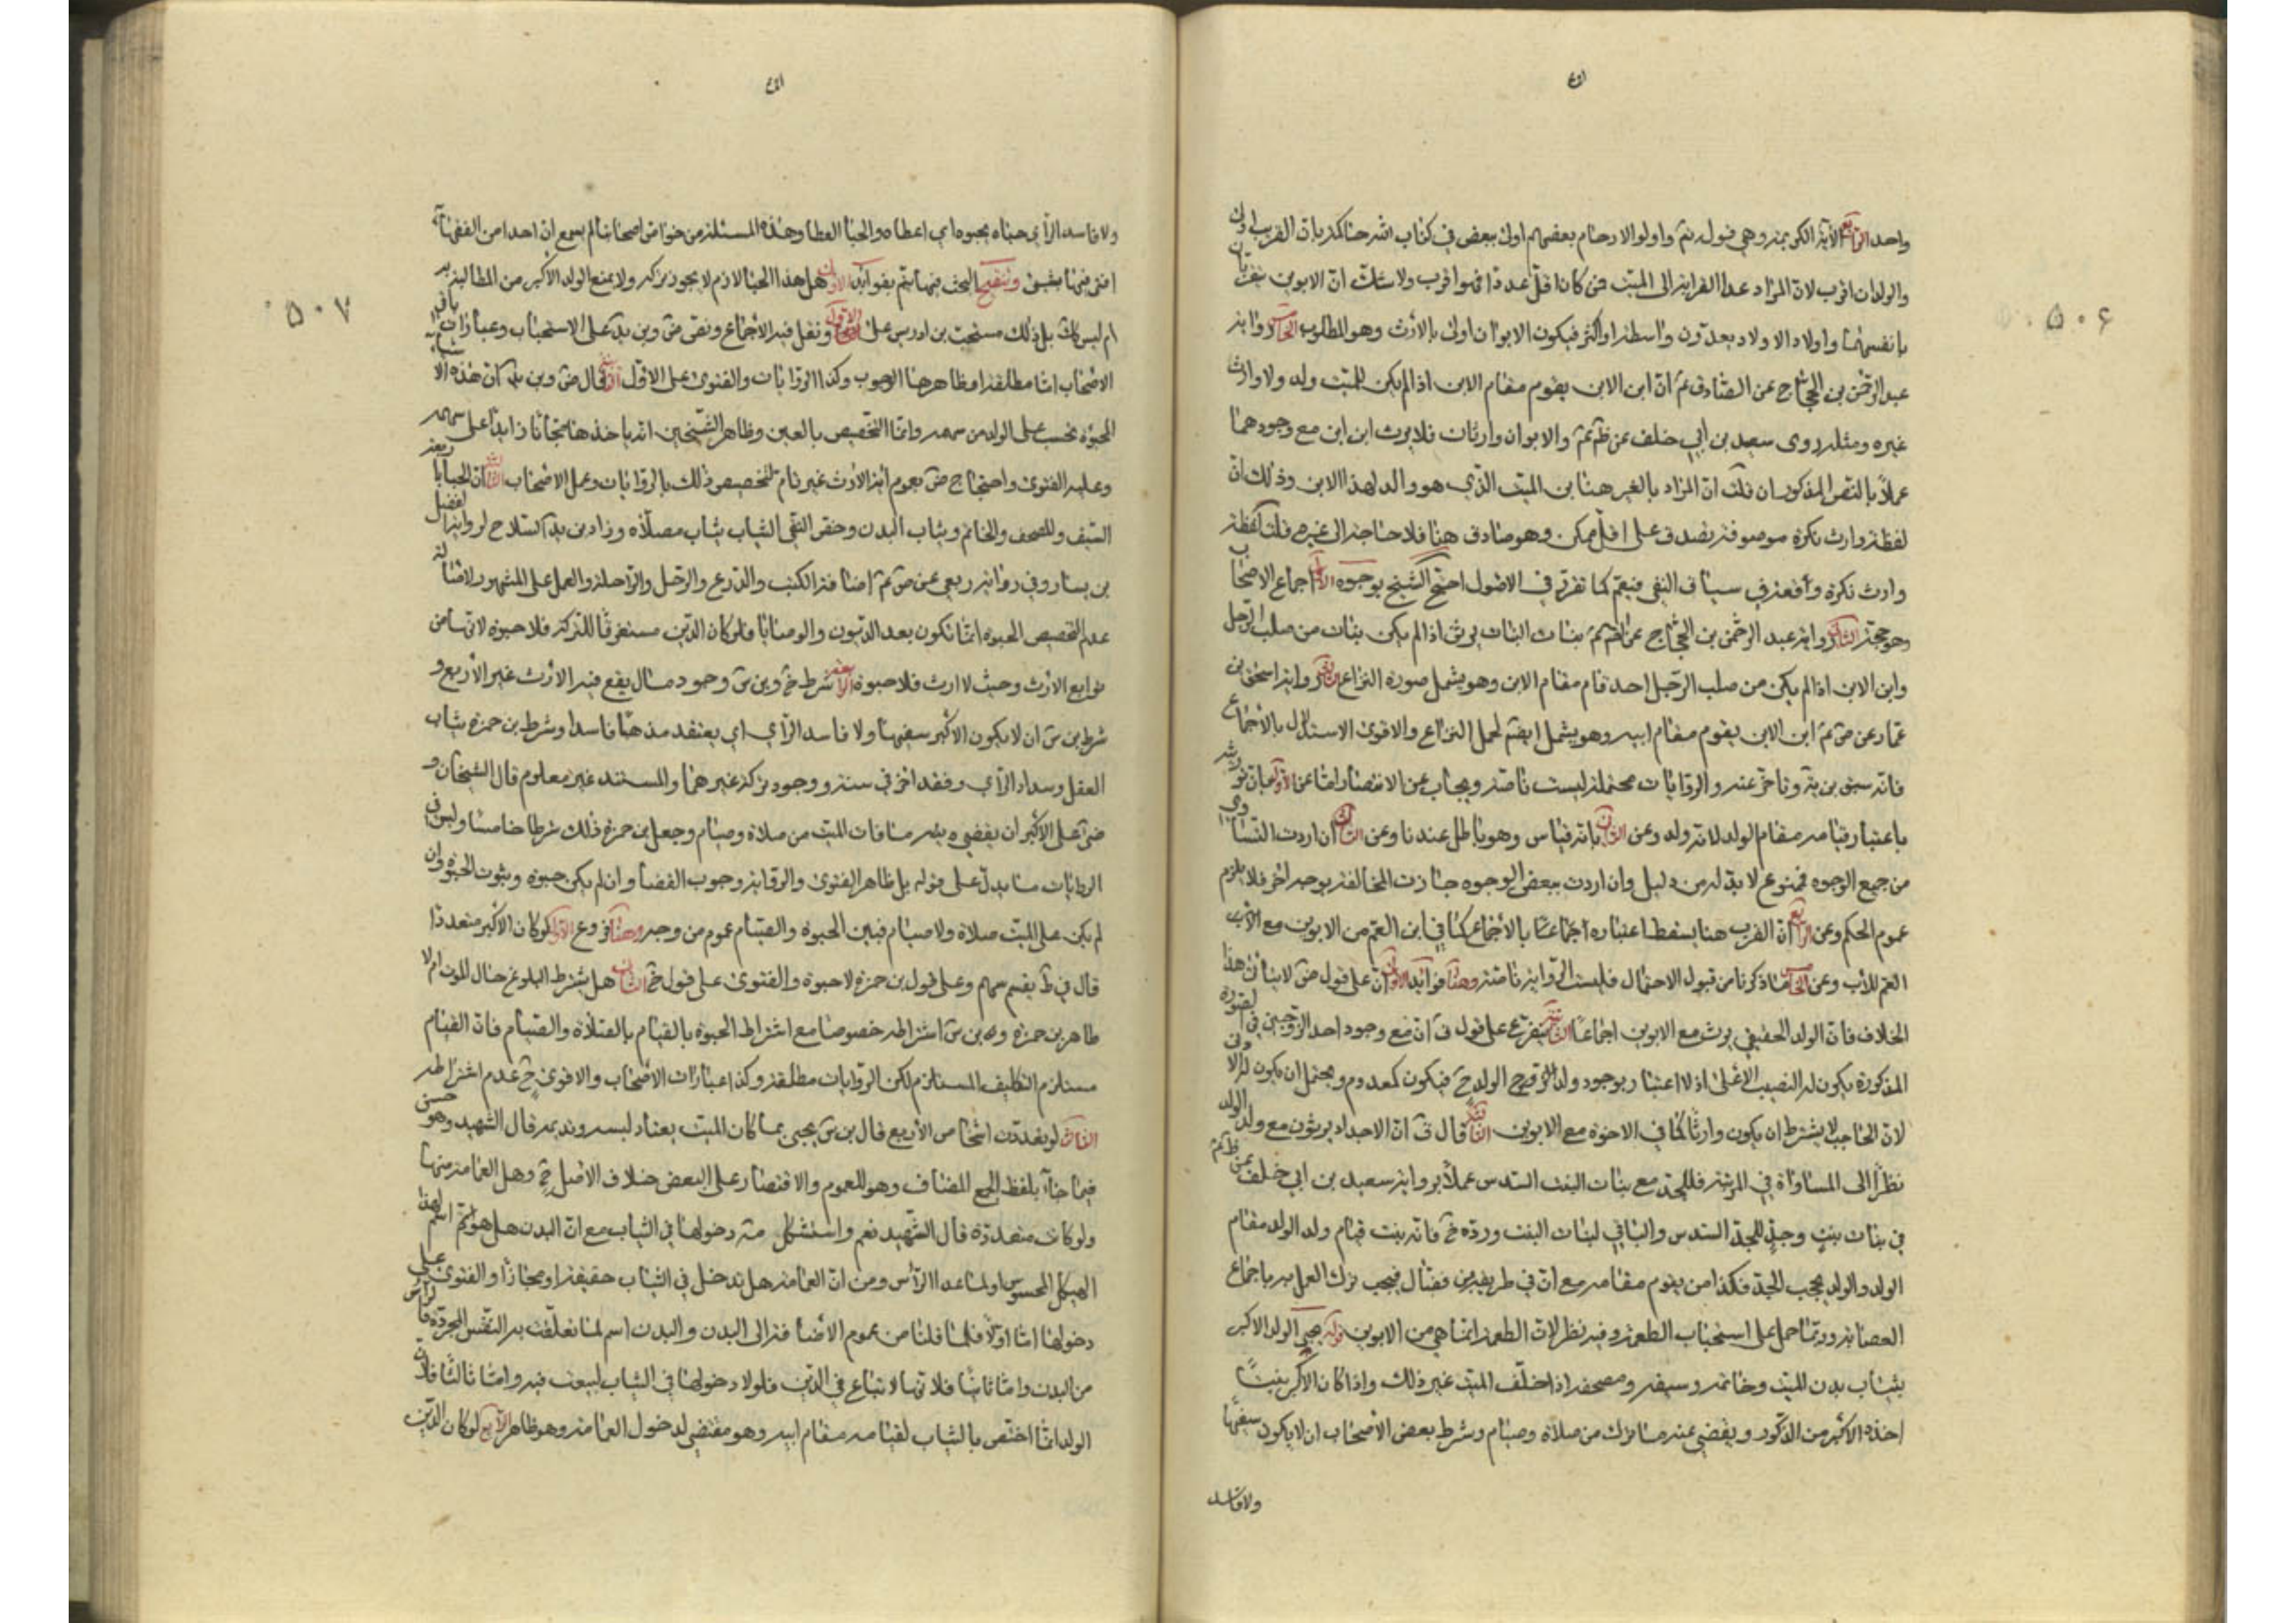 واحد الرابع الآية الكريمة وهي قوله تعالى واولوا الارحام بعضهم اولى ببعض في كتاب الله حاكمة بان القريب اولى
والولدان اقرب لان المراد عدا القرابة الى الميت فمن كان اقل عددا فهو اقرب ولا شك ان الابوين يتقربان
بانفسهما واولاد الاولاد يعدون واسطة او اكثر فيكون الابوان اولى بالارث وهو المطلوب الخامس رواية
عبد الرحمن بن الحجاج عن الصادق ع ان ابن الابن يقوم مقام الابن اذا لم يكن للميت ولد ولا وارث
غيره ومثله روى سعد بن ابي خلف عن ظم ع والابوان وارثان فلا يرث ابن ابن مع وجودهما
عملا بالنص المذكور ان قلت ان المراد بالغير هنا ابن الميت الذي هو والد لهذا الابن وذلك ان
لفظة وارث نكرة موصوفة يصدق على اقل ممكن وهو صادق هنا فلا حاجة الى غيره قلت لفظة
وارث نكرة واقعة في سياق النفي فيعم كما تقرر في الاصول احتج الشيخ بوجوه الاول اجماع الاصحاب
وهو حجة الثاني رواية عبد الرحمن بن الحجاج عن ظم ع بنات البنات يرثن اذا لم يكن بنات من صلب الرجل
وابن الابن اذا لم يكن من صلب الرجل احد قام مقام الابن وهو يشمل صورة النزاع الثالث رواية اسحق بن
عمار عن ص ع ابن الابن يقوم مقام ابيه وهو يشمل ايضا لمحل النزاع والاقوى الاستدلال بالاجماع
فانه سبق بن يه وتاخر عنه والروايات محتملة ليست ناصة ويجاب عن الانتصار اما عن الاول فبان توريثه
باعتبار قيامه مقام الولد لانه ولد وعن الثاني بانه قياس وهو باطل عندنا وعن الثالث ان اردت التساوي
من جميع الوجوه فممنوع لا بد له من دليل وان اردت ببعض الوجوه جازت المخالفة بوجه اخر فلا يلزم
عموم الحكم وعن الرابع ان القرب هنا يسقط اعتباره اجماعنا بالاجماع كما في ابن العم من الابوين مع
العم للاب وعن الخامس ما ذكرنا من قبول الاحتمال فليست الرواية ناصة وهنا فوائد الاولى ان على قول ض لا يتاتى هذا
الخلاف فان الولد الحقيقي يرث مع الابوين اجماعا الثانية يتفرع على قول ق ان مع وجود احد الزوجين في الصورة
المذكورة يكون له النصيب الاعلى اذ لا اعتبار بوجود ولد الولد ح فيكون كمعدوم ويحتمل ان يكون له الادنى
لان الحاجب لا يشترط ان يكون وارثا كما في الاخوة مع الابوين الثالثة قال ق ان الاجداد يرثون مع ولد الولد
نظرا الى المساواة في المرتبة فللجد مع بنات البنت السدس عملا برواية سعد بن ابي خلف عن ظم ع
في بنات بنت وجد للجد السدس والباقي لبنات البنت ورده خ فانه بنت قيام ولد الولد مقام
الولد والولد يحجب الجد فكذا من يقوم مقامه مع ان في طريقه بن فضال فيجب ترك العمل به باجماع
العصابة وربما حمل على استحباب الطعمة وفيه نظر لان الطعمة انما هي من الابوين قوله يحبى الولد الاكبر
بثياب بدن الميت وخاتمه وسيفه ومصحفه اذا خلف الميت غير ذلك واذا كان الاكبر بنتا
اخذه الاكبر من الذكور ويقضى عنه ما ترك من صلاة وصيام وشرط بعض الاصحاب ان لا يكون سفيها
ولا فاسد
۵۰۶
ولا فاسد الراي حباه يحبوه اي اعطاه والحبا العطا وهذه المسئلة من خواص اصحابنا لم يسمع ان احدا من الفقهاء
افتى فيها بشيئ وتنقيح البحث فيها يتم بفوائد الاولى هل هذا الحبا لازم لا يجوز تركه ولا يمنع الولد الاكبر من المطالبة به
ام ليس كك بل ذلك مستحب بن ادريس على الاول ونقل فيه الاجماع ونص ض وبن يد على الاستحباب وعبارات باقي
الاصحاب اما مطلقة او ظاهرها الوجوب وكذا الروايات والفتوى على الاول الثانية قال ض وبن يد ان هذه الاشياء
الحبوة تحسب على الولد من سهمه وانما التخصيص بالعين وظاهر الشيخين انه ياخذها مجانا زايدا على سهمه
وعليه الفتوى واحتجاج ض بعموم اية الارث غير تام لتخصيص ذلك بالروايات وعمل الاصحاب الثالثة ان الحبا باربعة
السيف والمصحف والخاتم وثياب البدن وخص التقي الثياب بثياب مصلاه وزاد بن يد السلاح لرواية الفضيل
بن يسار وفي رواية ربعي عن ص ع اضافة الكتب والدرع والرحل والراحلة والعمل على المشهور لاصالة
عدم التخصيص الحبوة انما تكون بعد الديون والوصايا فلو كان الدين مستغرقا للتركة فلا حبوة لانها من
توابع الارث وحيث لا ارث فلا حبوة الرابعة شرط خ وبن س وجود مال يقع فيه الارث غير الاربع و
شرط بن س ان لا يكون الاكبر سفيها ولا فاسد الراي اي يعتقد مذهبا فاسدا وشرط بن حمزة ثبات
العقل وسداد الراي وفقد اخر في سنه ووجود تركة غيرهما والمستند غير معلوم قال الشيخان و
ض على الاكبر ان يقضي عن ابيه ما فات الميت من صلاة وصيام وجعل بن حمزة ذلك شرطا خامسا وليس في
الروايات ما يدل على قوله بل ظاهر الفتوى والرواية وجوب القضا وان لم يكن حبوة وثبوت الحبوة وان
لم يكن على الميت صلاة ولا صيام فبين الحبوة والصيام عموم من وجه وهنا فروع الاول لو كان الاكبر متعددا
قال في ط يقسم بينهم وعلى قول بن حمزة لا حبوة والفتوى على قول خ الثاني هل يشترط البلوغ حال الموت ام لا
ظاهر بن حمزة وبن س اشتراطه خصوصا مع اشتراط الحبوة بالقيام بالصلاة والصيام فان القيام
مستلزم التكليف المستلزم لكن الروايات مطلقة وكذا عبارات الاصحاب والاقوى ح عدم اشتراطه
الثالث لو تعددت اشخاص الاربع قال بن س يحبى بما كان الميت يعتاد لبسه ويديمه قال الشهيد وهو حسن
فيما جاء بلفظ الجمع المضاف وهو للعموم والاقتصار على البعض خلاف الاصل ح وهل العمامة منها
ولو كانت متعددة قال الشهيد نعم واستشكل من دخولها في الثياب مع ان البدن هل هو اسم لهذا
الهيكل المحسوس او لما عدا الراس ومن ان العمامة هل تدخل في الثياب حقيقة او مجازا والفتوى على
دخولها اما اولا فلما قلنا من عموم الاضافة الى البدن والبدن اسم لما تعلقت به النفس المجردة فالراس
من البدن واما ثانيا فلانها لا تباع في الدين فلولا دخولها في الثياب لبيعت فيه واما ثالثا فلان
الولد انما اختص بالثياب لقيامه مقام ابيه وهو مقتضي لدخول العمامة وهو ظاهر الرابع لو كان الدين
۵۰۷